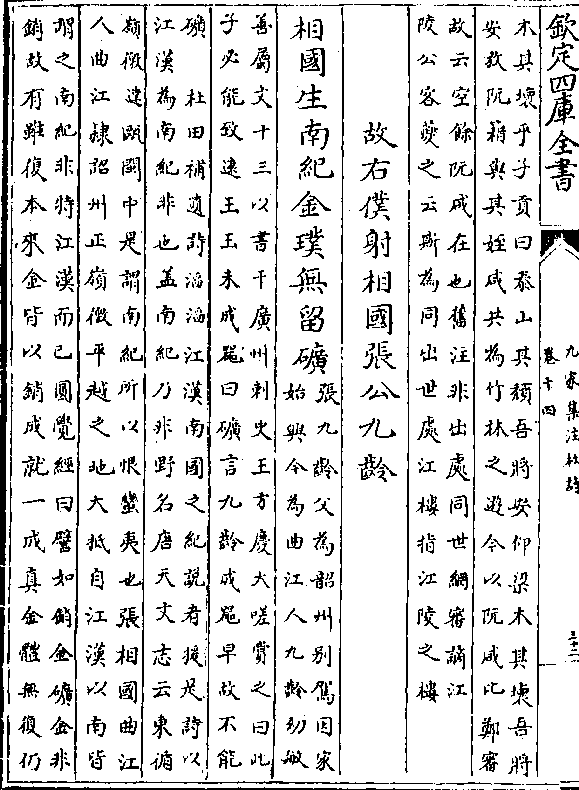 欽定四庫全書
九家集注杜詩
卷十四
三十二
木其壞乎子貢曰泰山其頽吾將安仰梁木其壞吾將
安放阮籍與其姪咸共為竹林之遊今以阮咸比鄭審
故云空餘阮咸在也舊注非出處同世網審謫江
陵公客夔之云斯為同出世處江樓指江陵之樓
故右僕射相國張公九齡
相國生南紀金璞無留礦
張九齡父為韶州别駕因家
始興今為曲江人九齡幼敏
善屬文十三以書干廣州刺史王方慶大嗟賞之曰此
子必能致遠王玉未成器曰礦言九齡成器早故不能
礦 杜田補遺詩滔滔江漢南國之紀説者援是詩以
江漢為南紀非也盖南紀乃非野名唐天文志云東循
嶺徼達甌閩中是謂南紀所以恨蠻夷也張相國曲江
人曲江隸詔州正嶺徼平越之地大抵自江漢以南皆
謂之南紀非特江漢而已圓覺經曰譬如銷金礦金非
銷故有雖復本來金皆以銷成就一成真金體無復仍